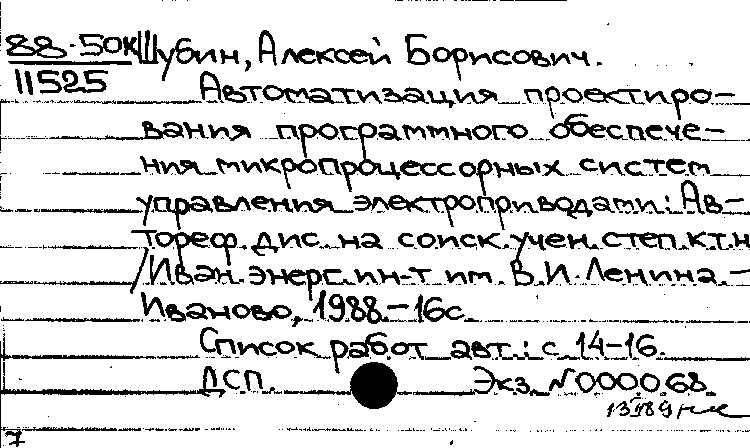 88-50к Шубин, Алексей Борисович.
11525
Автоматизация проектиро-
вания программного обеспече-
ния микропроцессорных систем
управления электроприводами: Ав-
тореф. дис. на соиск. учен. степ. к.т.н
/Иван. энерг. ин-т им. В.И. Ленина. -
Иваново, 1988. - 16с.
Список работ авт.: с. 14-16.
ДСП. Экз. N000068.
7